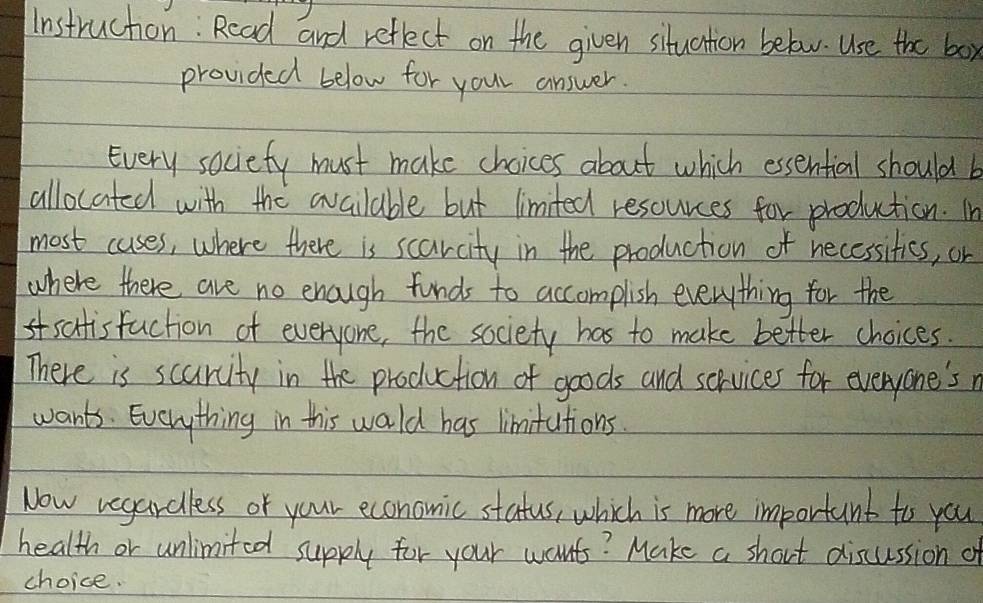 Instruction : Read and reflect on the given situation below. Use the box
provided below for your answer.
Every society must make choices about which essential should b
allocated with the available but limited resources for production. In
most cases, where there is scarcity in the production of necessities, or
where there are no enough funds to accomplish everything for the
satisfaction of everyone, the society has to make better choices.
There is scarcity in the production of goods and services for everyone's n
wants. Everything in this world has limitations.
Now regardless of your economic status, which is more important to you
health or unlimited supply for your wants? Make a short discussion of
choice.